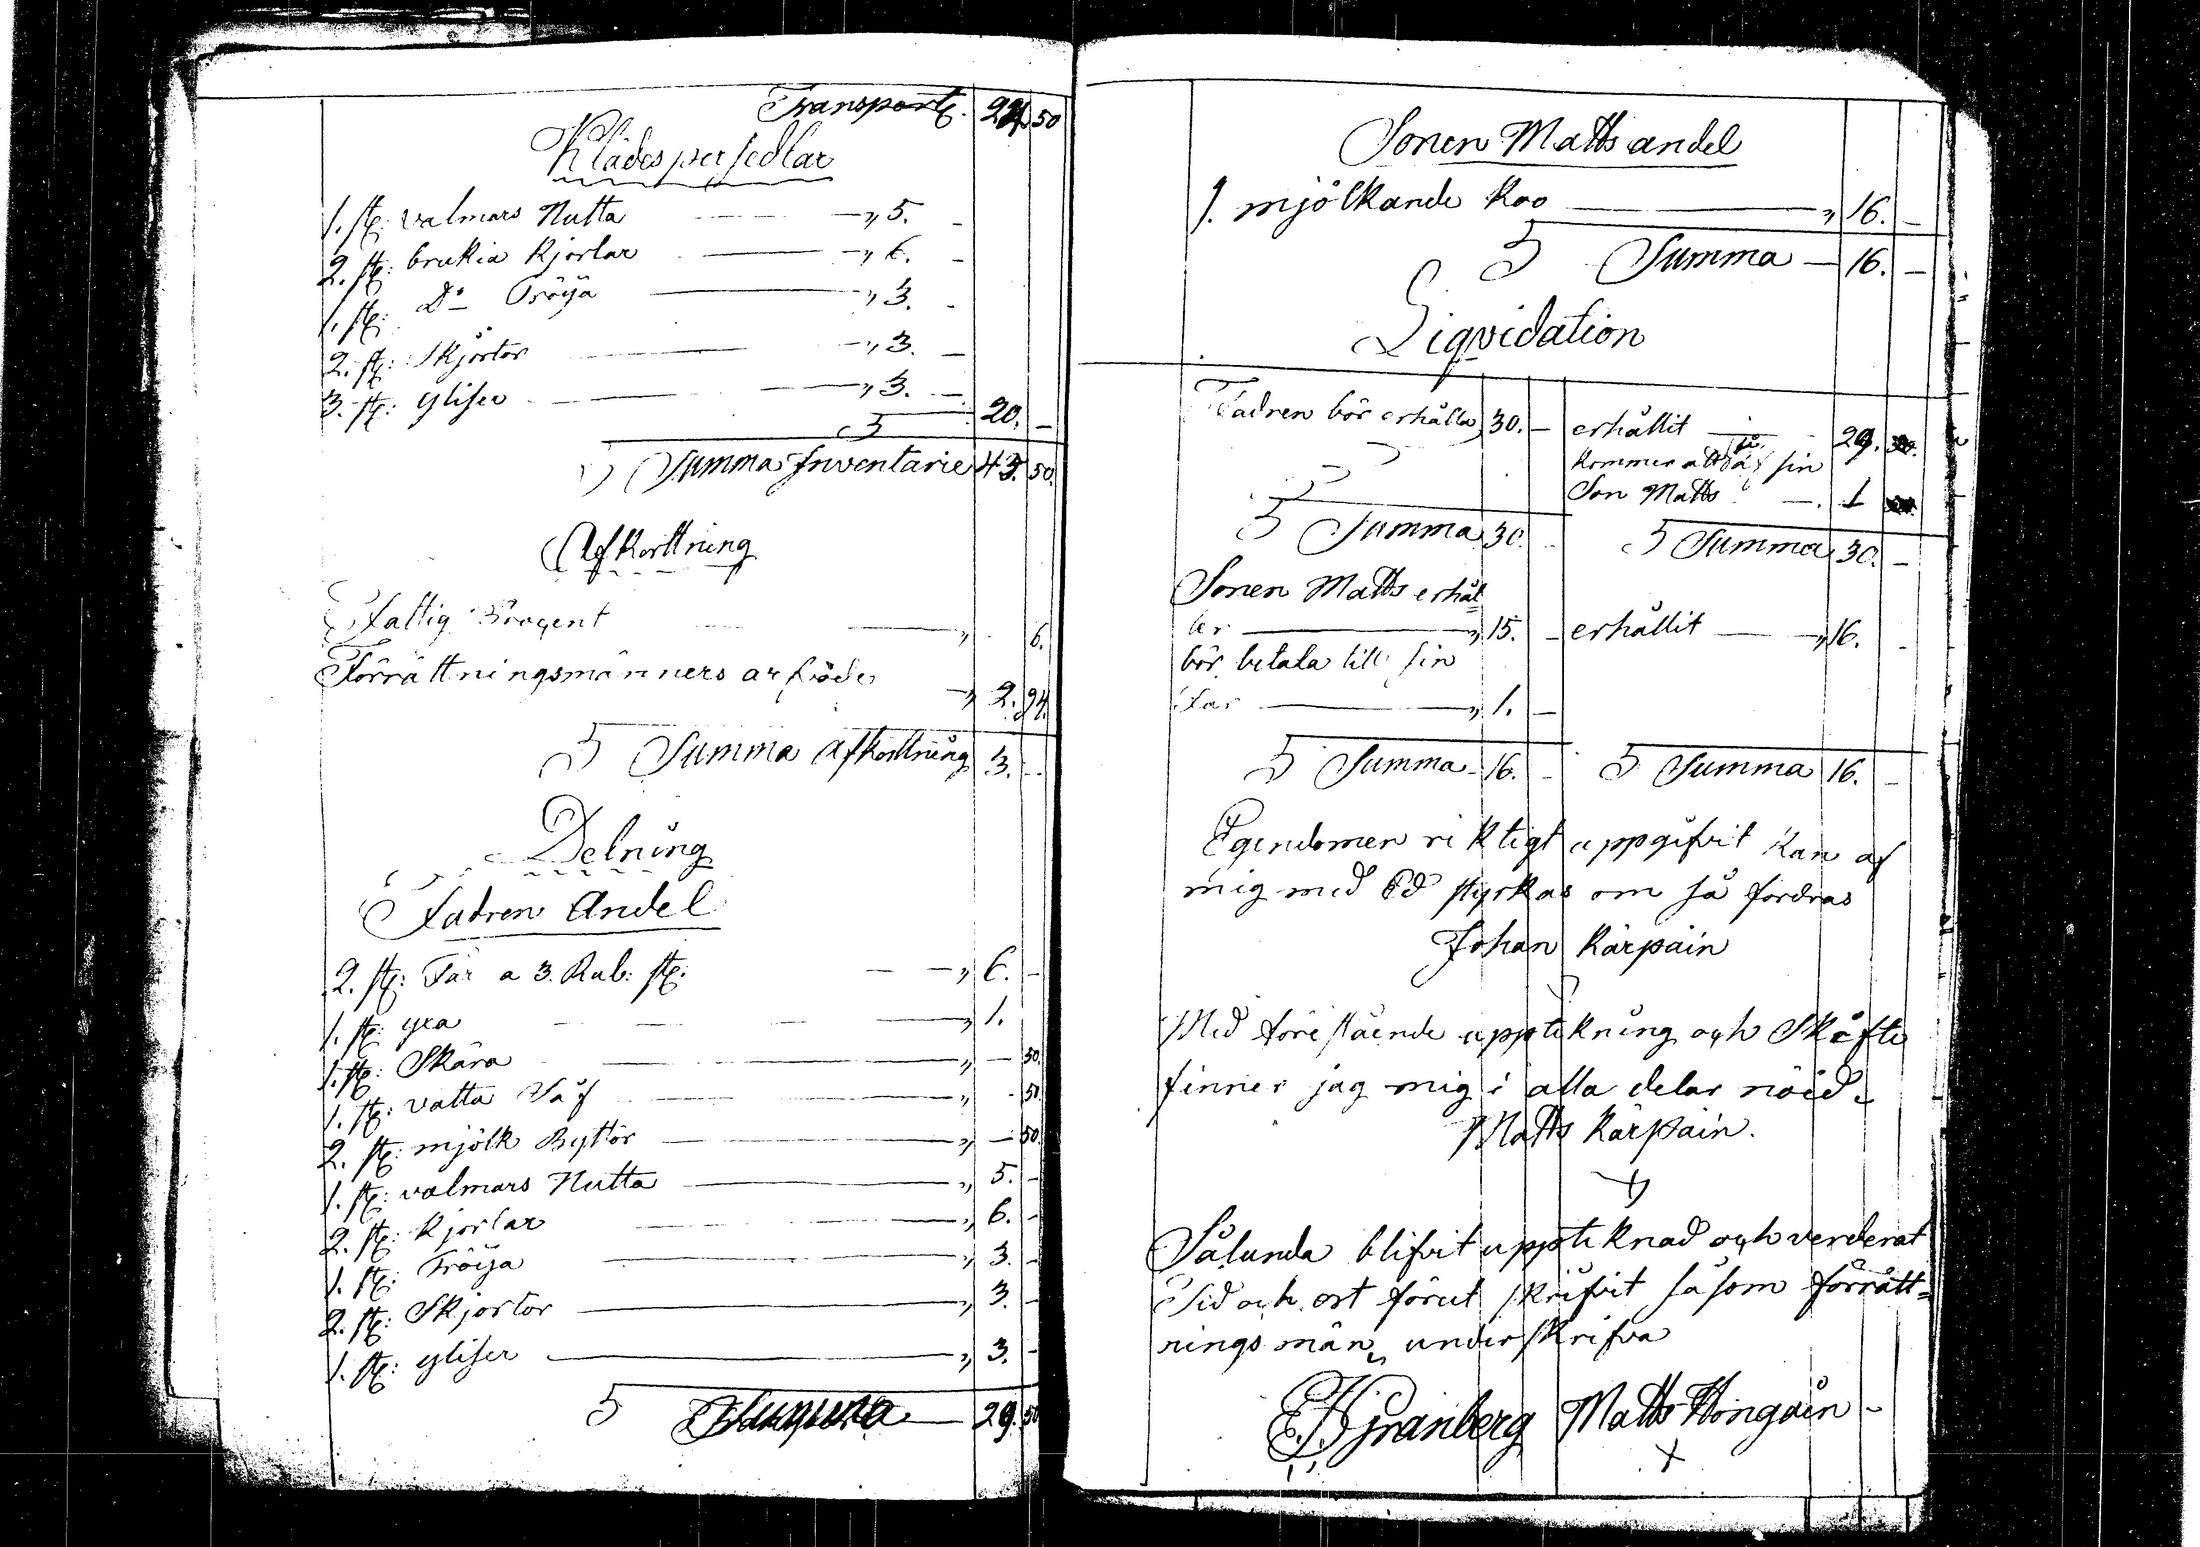 Transport 24 50
Klädespersedlar
1. st: valmars Nutta " 5. -
2. st: brukia Kjortar " 6. -
1. st: Do Tröija " 3. -
2. st: Skjortor " 3. -
3. st: yliser " 3. - 20. -
Summa Inventarie 43. 50.
Afkorttning
Fattig Procent " 6.
Förrättningsmänners arfvode " 2. 94.
Summa afkorttning 3. -
Delning
Fadren Andel
2. st: Får a 3. Rub: st: " 6. -
1. st: yxa " 1.
1. st: Skära " - 50.
1. st: vatta Såf " - 50.
2. st: mjölk Byttor " - 50.
1. st: valmars Nutta " 5. -
2. st: Kjortar " 6. -
1. st: Tröija " 3. -
2. st: Skjortor " 3. -
1. st: yliser " 3. -
Summa 29. 50
Sonen Matts andel
1. mjölkande Koo " 16. -
Summa - 16. -
Liqvidation
Fadren bör erhålla 30. - erhållit 29.
kommer att få af sin
Son Matts 1
Summa 30. - Summa 30. -
Sonen Matts erhål
ler " 15. - erhållit " 16. -
bör betala till sin
Far " 1. -
Summa - 16. - Summa 16. -
Egendomen riktigt uppgifvit kan af
mig med Ed styrkas om så fordras
Johan Kärpäin
Med förestående upptekning och Skifte
finner jag mig i alla delar nöid.
Matts Kärpäin.
Sålunda blifvit uppteknad och verderat
Tid och ort förut skrifvit såsom förrätt=
ningsmän underskrifva
E. H. Granberg Matts Hongain -
x